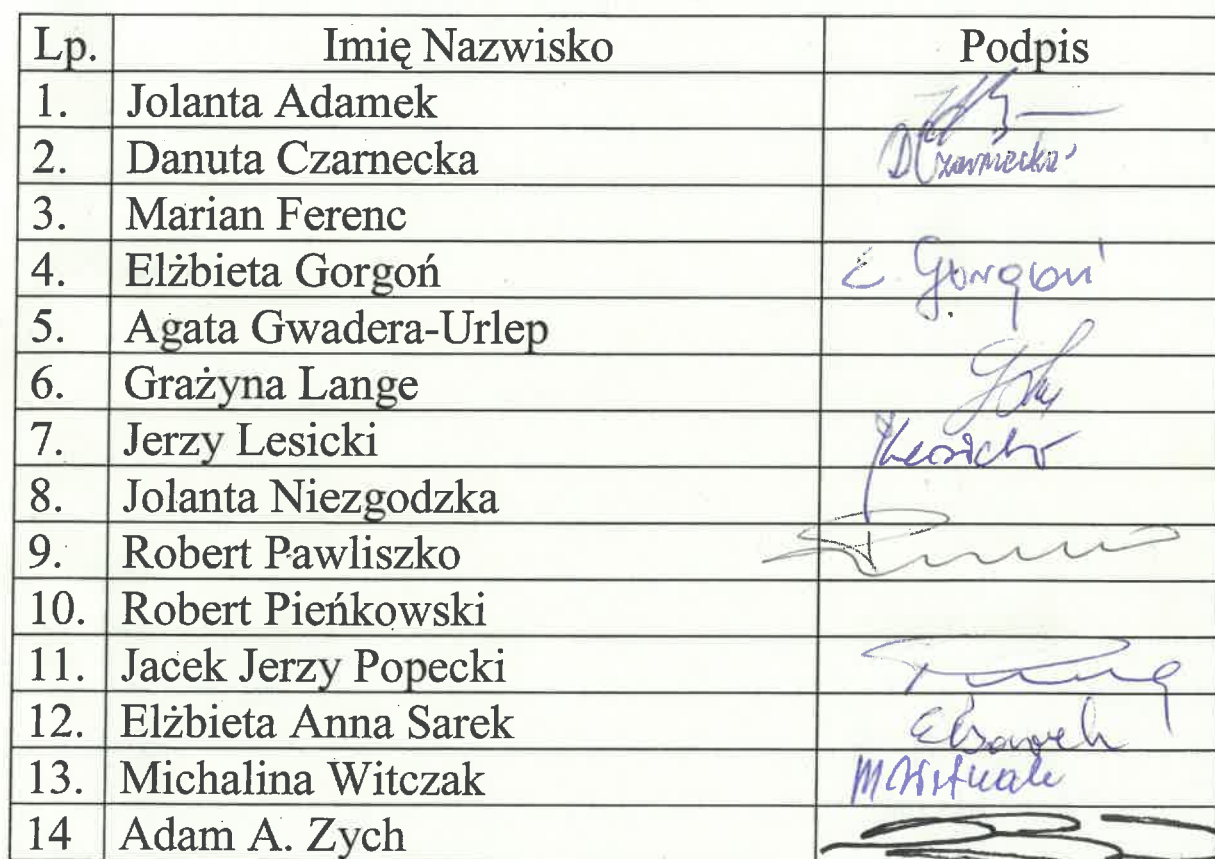 Lp. Imię Nazwisko Podpis
1. Jolanta Adamek
2. Danuta Czarnecka DCzarnecka
3. Marian Ferenc
4. Elżbieta Gorgoń E Gorgoń
5. Agata Gwadera-Urlep
6. Grażyna Lange
7. Jerzy Lesicki
8. Jolanta Niezgodzka
9. Robert Pawliszko
10. Robert Pieńkowski
11. Jacek Jerzy Popecki
12. Elżbieta Anna Sarek
13. Michalina Witczak
14 Adam A. Zych